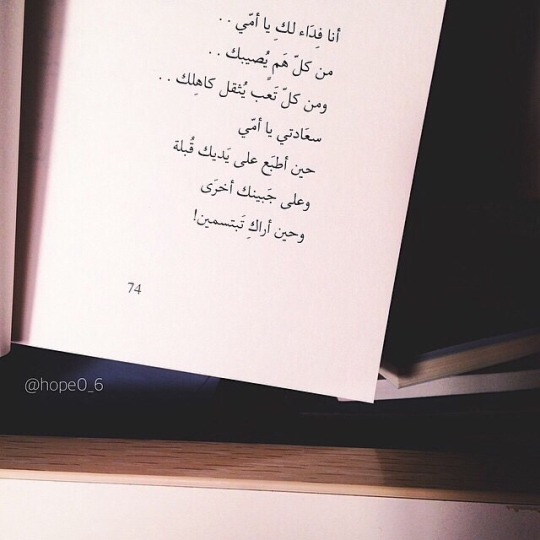 أنا فِدَاء لكِ يا أمّي . .
من كلّ هَم يُصيبك . .
ومن كلّ تَعب يُثقل كاهِلك . .
سعَادتي يا أمّي
حين أطبَع على يَديك قُبلة
وعلى جَبينك أخرَى
وحين أراكِ تَبتسمين!
74
@hope0_6